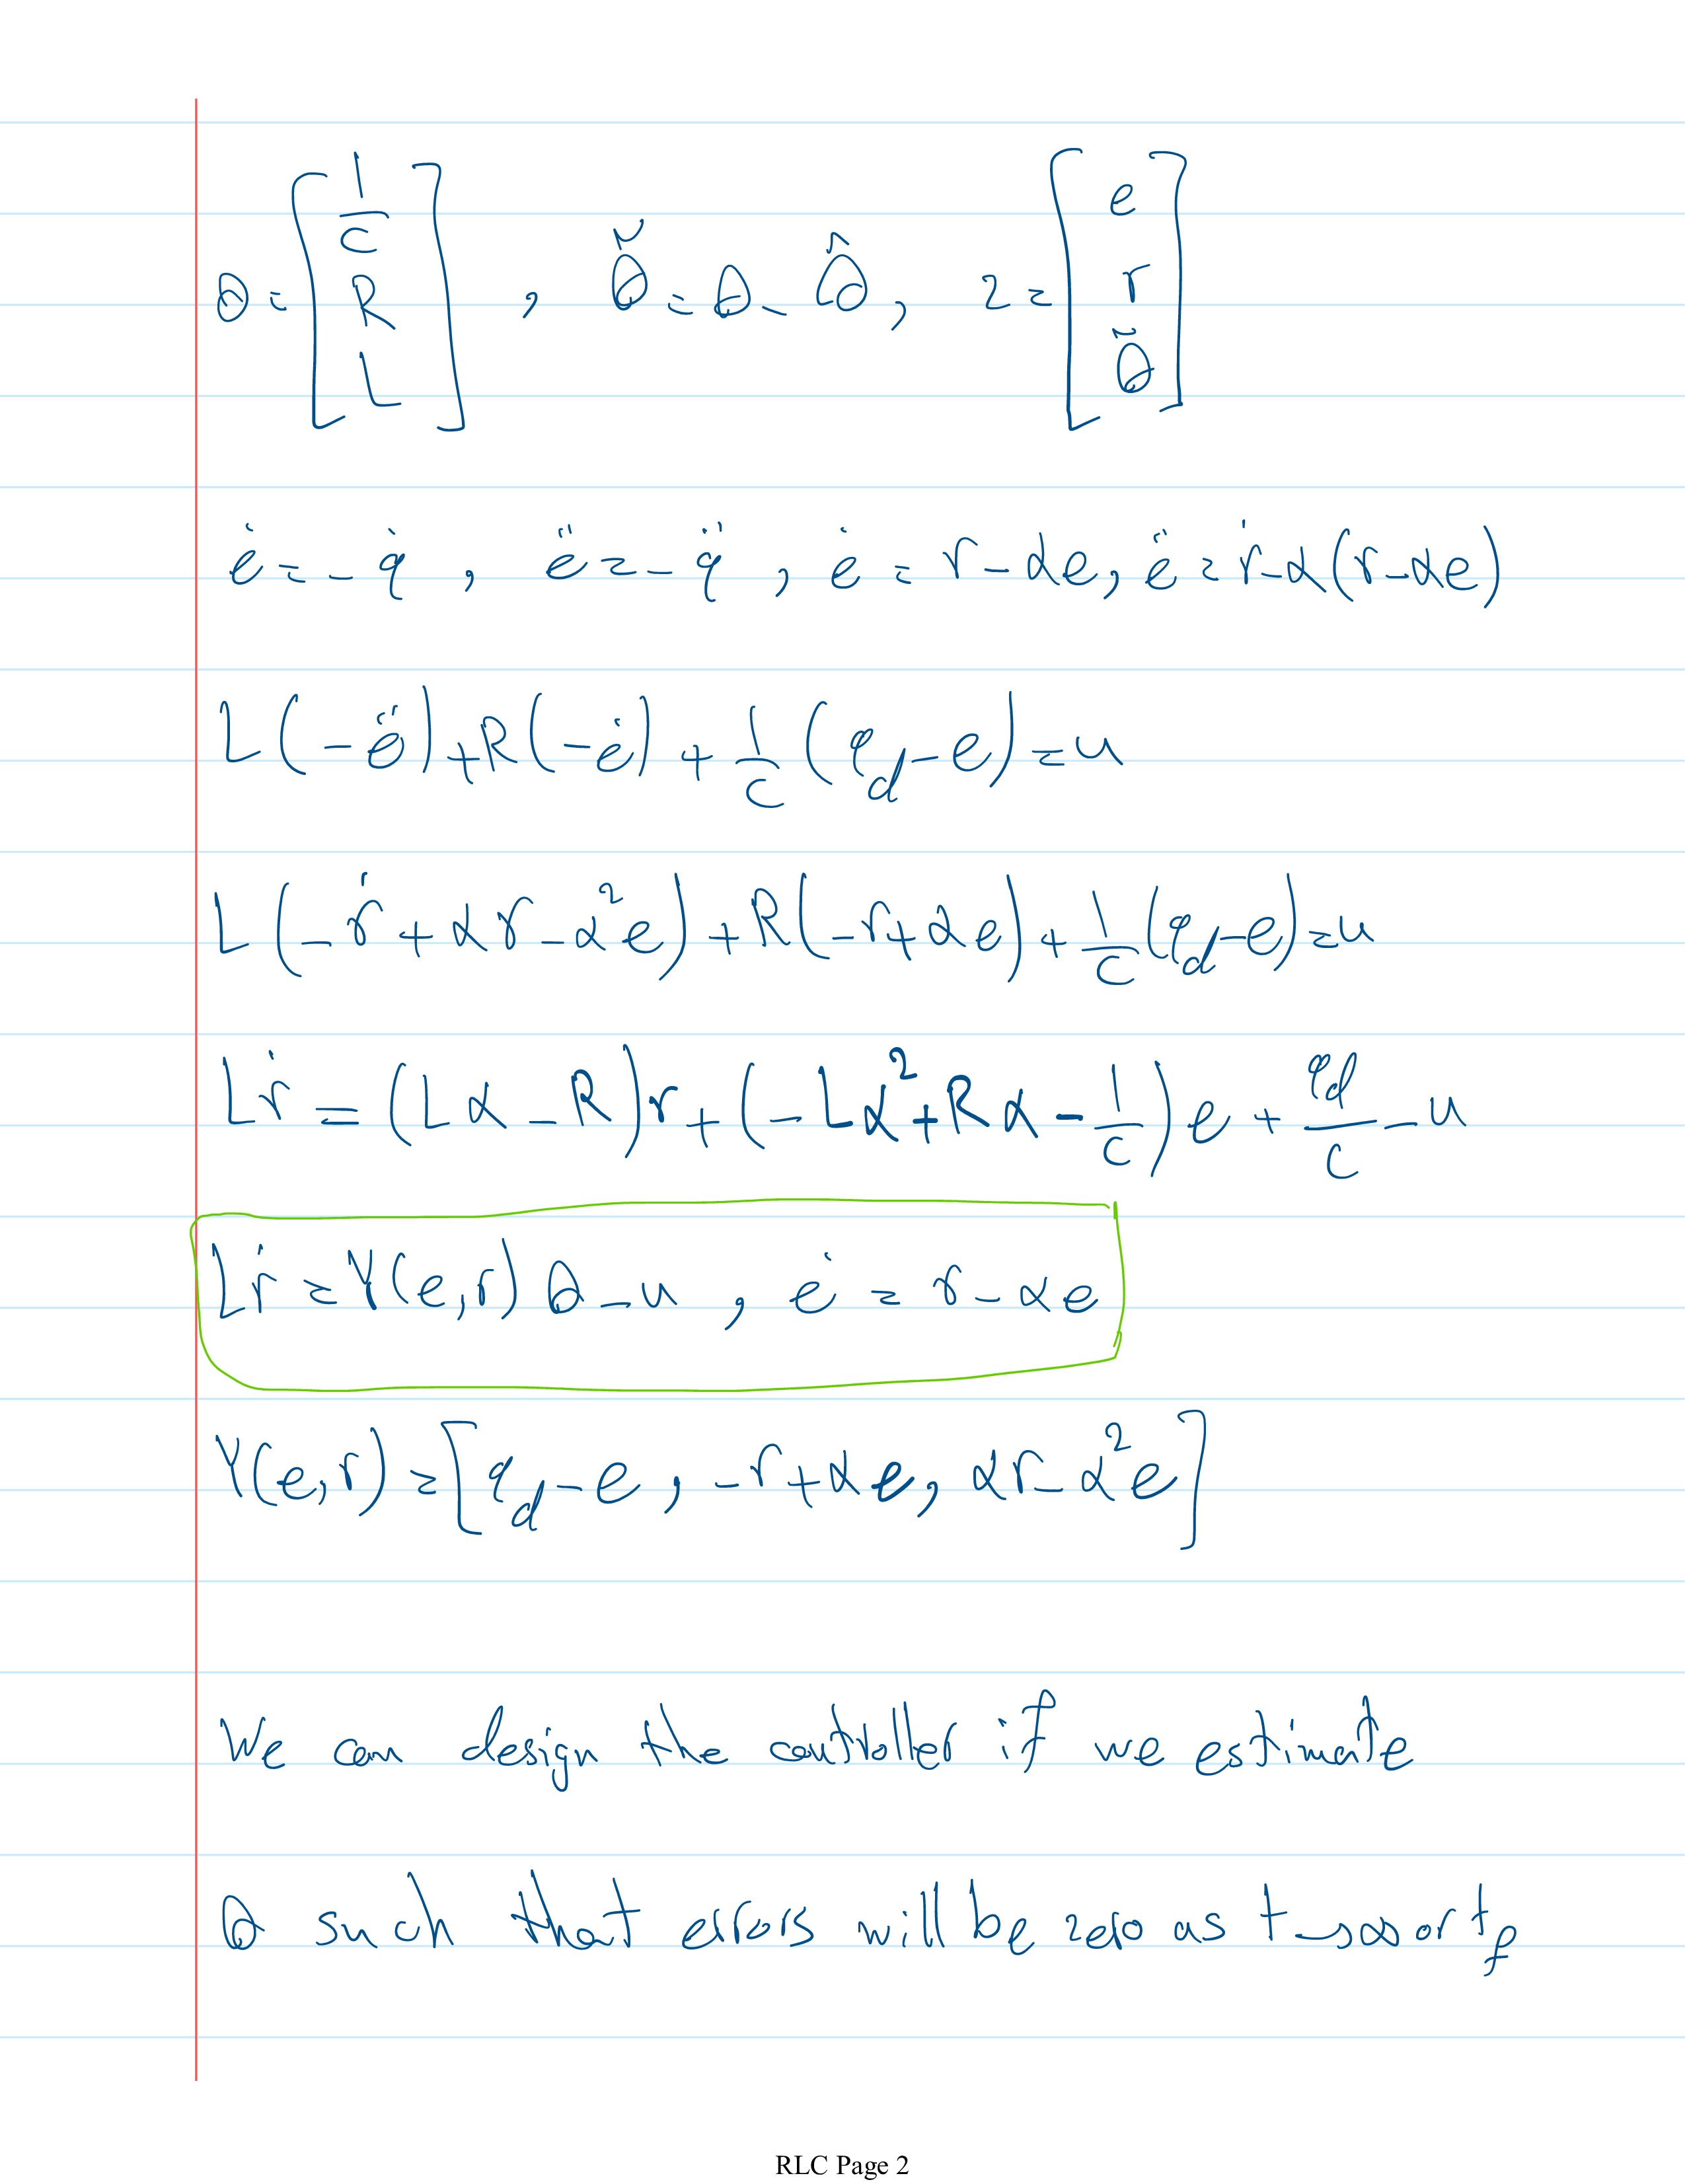 θ = [ 1/C R L ] , θ̃ = θ - θ̂ , z = [ e r θ̃ ]
ė = -q̇ , ë = -q̈ , ė = r - αe, ë = ṙ - α(r - αe)
L(-ë) + R(-ė) + 1/C (q_d - e) = u
L(-ṙ + αr - α²e) + R(-r + αe) + 1/C (q_d - e) = u
Lṙ = (Lα - R)r + (-Lα² + Rα - 1/C)e + q_d/C - u
Lṙ = Y(e,r) θ - u , ė = r - αe
Y(e,r) = [q_d - e , -r + αe, αr - α²e]
We can design the controller if we estimate
θ such that errors will be zero as t→∞ or t_f
RLC Page 2